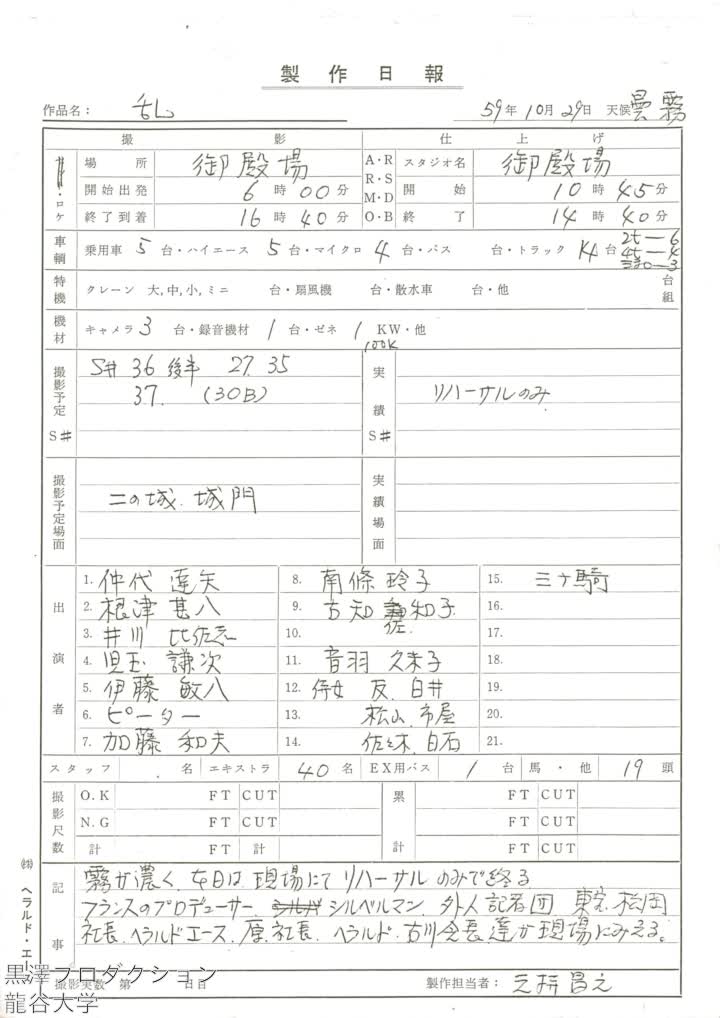 製作日報
作品名： 乱 59年10月29日 天候 曇霧
撮影 仕上げ
ロケ 場所 御殿場 A・R R・S M・D O・B スタジオ名 御殿場
開始出発 6時00分 開始 10時45分
終了到着 16時40分 終了 14時40分
車輌 乗用車 5台・ハイエース 5台・マイクロ 4台・バス 台・トラック 14台 2t―6 4t―4
特機 クレーン 大,中,小,ミニ 台・扇風機 台・散水車 台・他 台組
機材 キャメラ 3台・録音機材 1台・ゼネ 1 KW・他
100K
撮影予定 S# S# 36 後半 27. 35
37. (30B)
実績 S# リハーサルのみ
撮影予定場面 二の城. 城門 実績場面
出演者
1. 仲代 達矢 8. 南條 玲子 15. 三十騎
2. 根津 甚八 9. 古知佐和子 16.
3. 井川 比佐志 10. 17.
4. 児玉 謙次 11. 音羽 久米子 18.
5. 伊藤 敏八 12. 侍女 反. 白井 19.
6. ピーター 13. 松山. 市屋 20.
7. 加藤 和夫 14. 佐々木. 白石 21.
スタッフ 名 エキストラ 40名 EX用バス 1台 馬・他 19頭
撮影尺数 O.K FT CUT 累計 FT CUT
N.G FT CUT FT CUT
計 FT 計 FT CUT
記事
霧が濃く、本日は現場にてリハーサルのみで終る
フランスのプロデューサー シルベルマン、外人記者団、東宝、松岡
社長、ヘラルドエース、原社長、ヘラルド、古川会長達が現場にみえる。
㈱ ヘラルド・エース
撮影実数 第 日目 製作担当者：
黒澤プロダクション
龍谷大学